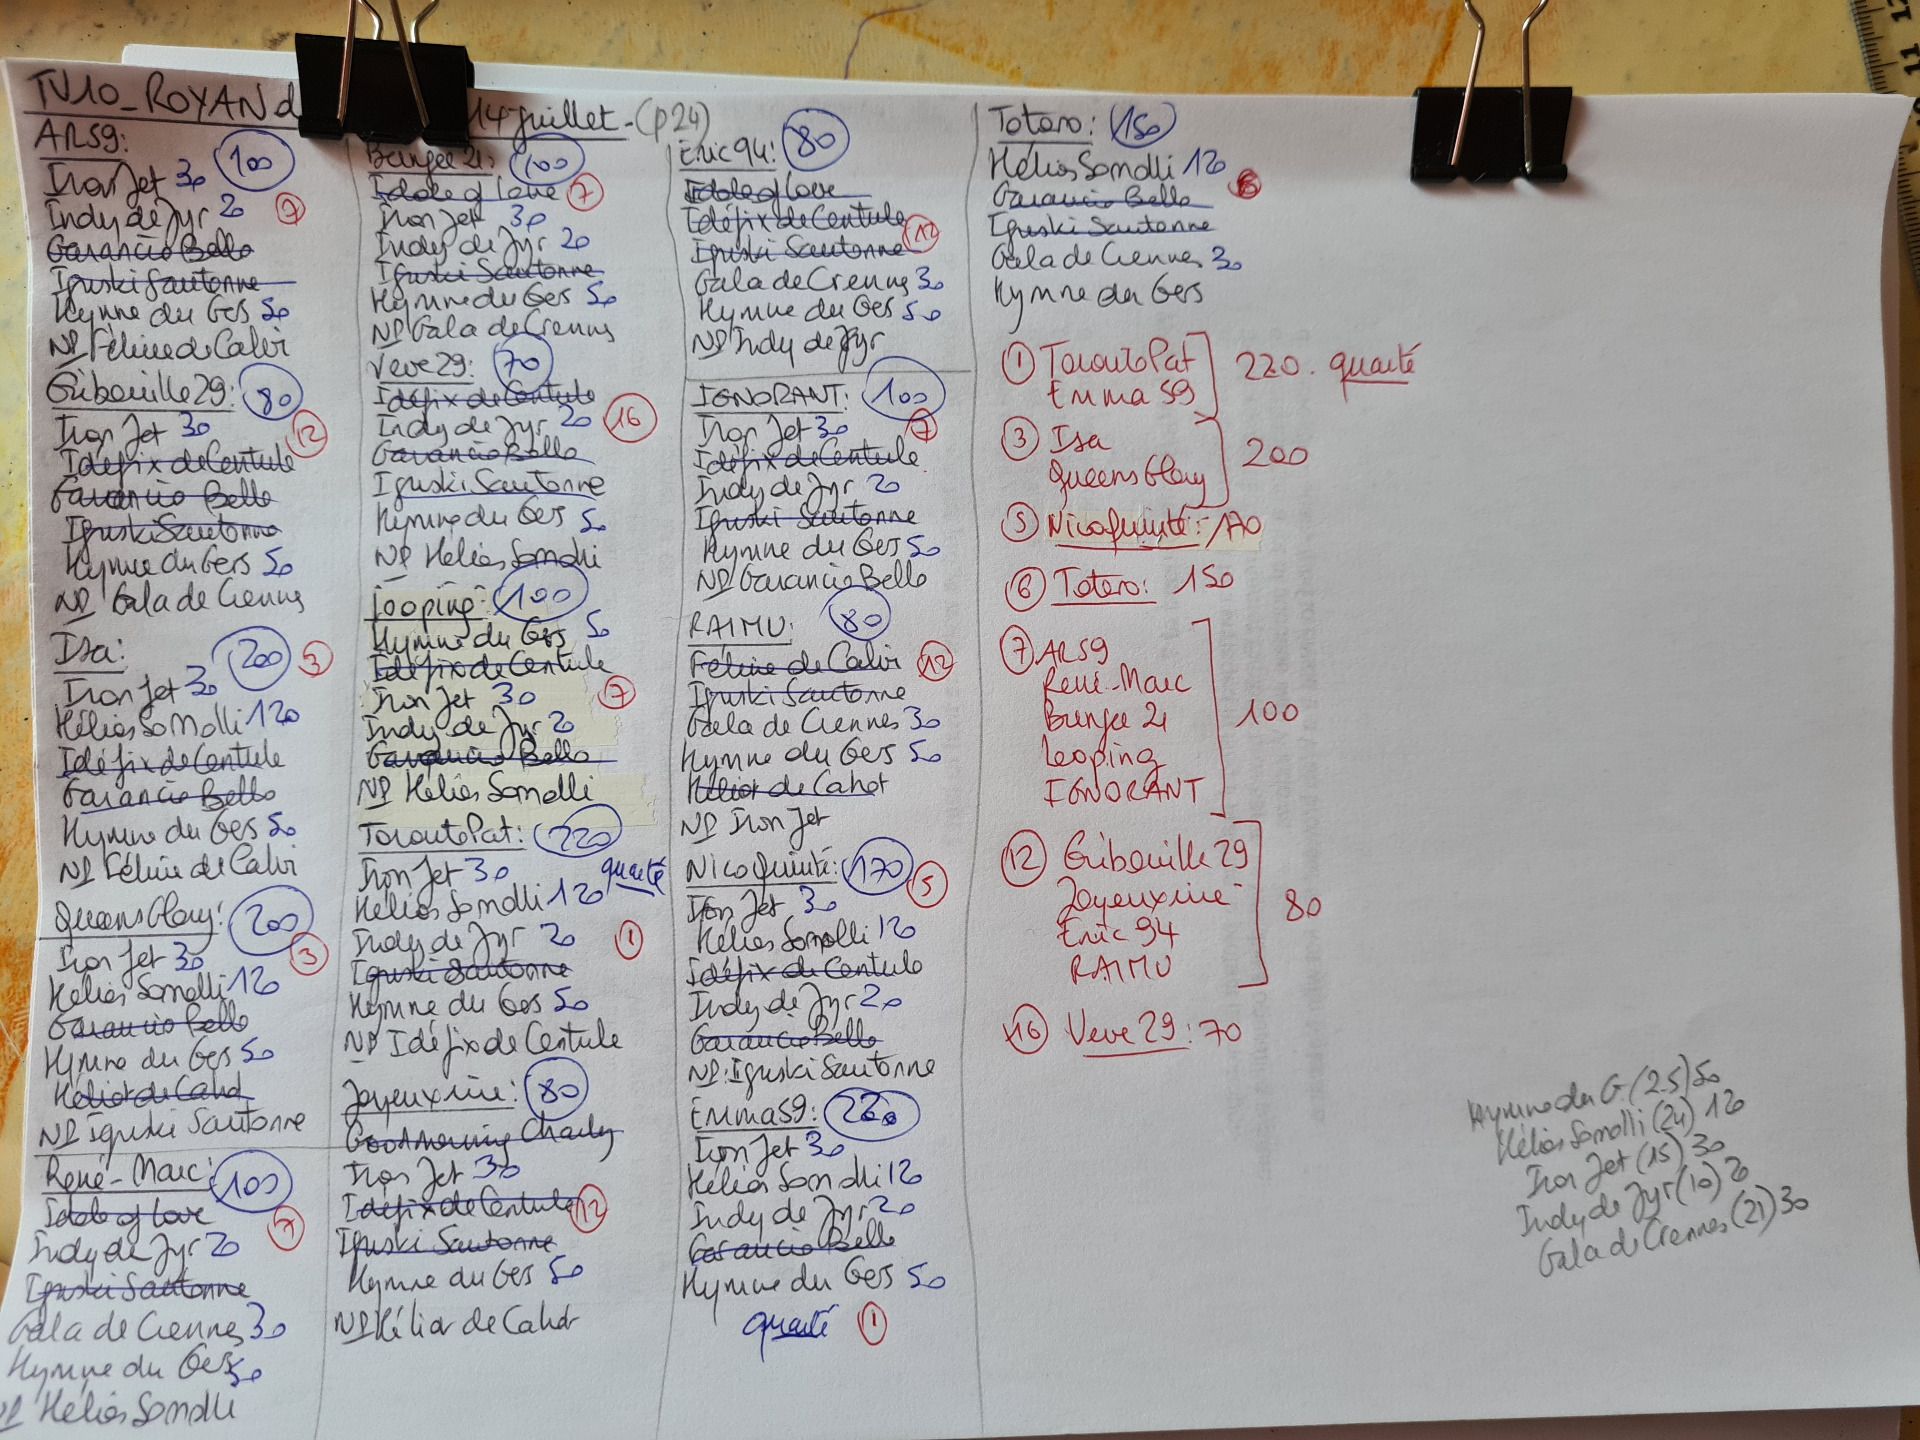 TV10_ROYAN d
14 juillet - (p24)
ARS9: 100
Iron Jet 30
Indy de Jyr 20 7
Garancio Bello
Iguski Sautonne
Hymne du Gers 50
NP Féline de Calvi
Gribouille 29: 80
Iron Jet 30 12
Idéfix de Centule
Garancio Bello
Iguski Sautonne
Hymne du Gers 50
NP Gala de Crennes
Isa: 200 3
Iron Jet 30
Hélios Somolli 120
Idéfix de Centule
Garancio Bello
Hymne du Gers 50
NP Féline de Calvi
QueensGlory: 200
Iron Jet 30 3
Hélios Somolli 120
Garancio Bello
Hymne du Gers 50
Hélior de Cahot
NP Iguski Sautonne
René-Marc: 100
Idole of Love 7
Indy de Jyr 20
Iguski Sautonne
Gala de Crennes 30
Hymne du Gers 50
NP Hélios Somolli
Bungee 21: 100
Idole of Love 7
Iron Jet 30
Indy de Jyr 20
Iguski Sautonne
Hymne du Gers 50
NP Gala de Crennes
Veve 29: 70
Idéfix de Centule
Indy de Jyr 20 16
Garancio Bello
Iguski Sautonne
Hymne du Gers 50
NP Hélios Somolli
Looping: 100
Hymne du Gers 50
Idéfix de Centule
Iron Jet 30 7
Indy de Jyr 20
Garancio Bello
NP Hélios Somolli
TorontoPat: 220
Iron Jet 30 quarté
Hélios Somolli 120
Indy de Jyr 20 1
Iguski Sautonne
Hymne du Gers 50
NP Idéfix de Centule
Joyeuxrire: 80
Good Morning Charly
Iron Jet 30
Idéfix de Centule 12
Iguski Sautonne
Hymne du Gers 50
NP Hélior de Cahot
Eric 94: 80
Idole of Love
Idéfix de Centule
Iguski Sautonne 12
Gala de Crennes 30
Hymne du Gers 50
NP Indy de Jyr
IGNORANT: 100
Iron Jet 30 7
Idéfix de Centule
Indy de Jyr 20
Iguski Sautonne
Hymne du Gers 50
NP Garancio Bello
RAIMU: 80
Féline de Calvi 12
Iguski Sautonne
Gala de Crennes 30
Hymne du Gers 50
Hélior de Cahot
NP Iron Jet
NicoQuinté: 170
Iron Jet 30 5
Hélios Somolli 120
Idéfix de Centule
Indy de Jyr 20
Garancio Bello
NP: Iguski Sautonne
Emma59: 220
Iron Jet 30
Hélios Somolli 120
Indy de Jyr 20
Garancio Bello
Hymne du Gers 50
quarté 1
Totoro: 150
Hélios Somolli 120
Garancio Bello 6
Iguski Sautonne
Gala de Crennes 30
Hymne du Gers
1 TorontoPat
Emma 59
220. quarté
3 Isa
QueensGlory
200
5 NicoQuinté: 170
6 Totoro: 150
7 ARS9
René-Marc
Bungee 21
Looping
IGNORANT
100
12 Gribouille 29
Joyeuxrire
Eric 94
RAIMU
80
16 Veve 29: 70
Hymne du G. (2.5) 50
Hélios Somolli (24) 120
Iron Jet (15) 30
Indy de Jyr (10) 20
Gala de Crennes (21) 30